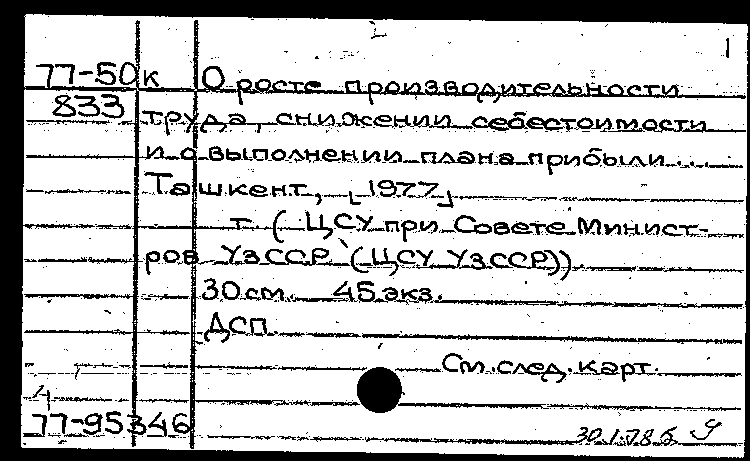 1
77-50к О росте производительности
833 труда, снижении себестоимости
и о выполнении плана прибыли...
Ташкент, [1977]
т. (ЦСУ при Совете Минист-
ров УзССР (ЦСУ УзССР)).
30см. 45 экз.
ДСП.
См.след.карт.
77-95346
30.1.78